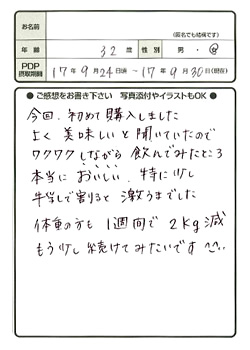 お名前
(匿名でも結構です)
年齢 32歳 性別 男・女
PDP摂取期間 17年9月24日頃～17年9月30日(現在)
● ご感想をお書き下さい 写真添付やイラストもOK ●
今回、初めて購入しました
よく美味しいと聞いていたので
ワクワクしながら飲んでみたところ
本当においしい、特に少し
牛乳で割ると激うまでした
体重の方も1週間で2kg減
もう少し続けてみたいです^^